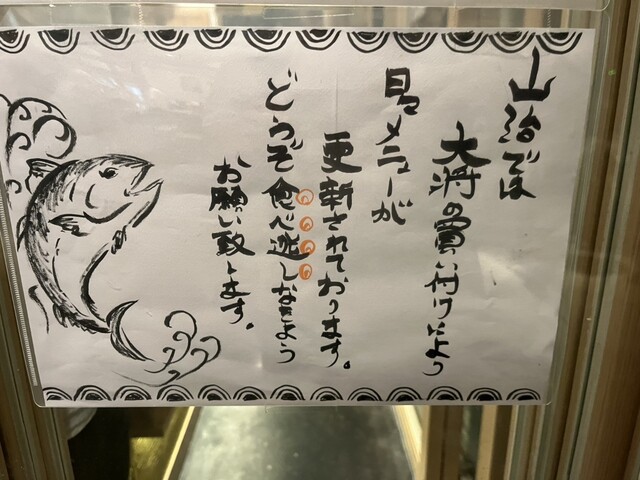 山治では
大将の買い付けにより
日々メニューが
更新されております。
どうぞ食べ逃しなきよう
お願い致します。